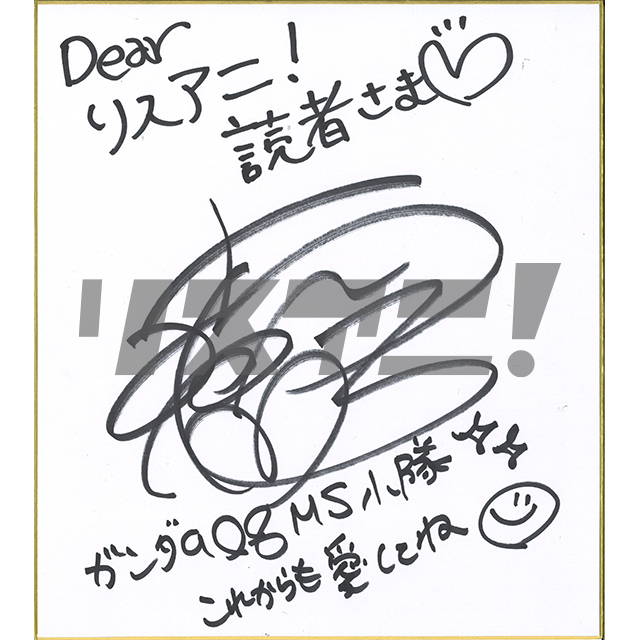 Dear
リスアニ!
読者さま♡
リスアニ!
ガンダム08MS小隊☆☆
これからも愛してね